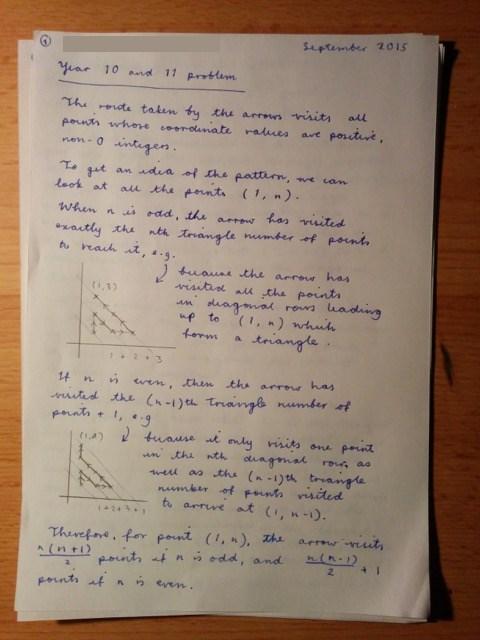 1
September 2015
Year 10 and 11 problem
The route taken by the arrows visits all
points whose coordinate values are positive,
non-0 integers.
To get an idea of the pattern, we can
look at all the points (1, n).
When n is odd, the arrow has visited
exactly the nth triangle number of points
to reach it, e.g.
because the arrow has
visited all the points
in diagonal rows leading
up to (1, n) which
form a triangle.
(1,3)
1 + 2 + 3
If n is even, then the arrow has
visited the (n-1)th triangle number of
points + 1, e.g
because it only visits one point
in the nth diagonal row, as
well as the (n-1)th triangle
number of points visited
to arrive at (1, n-1).
1+2+3+1
Therefore, for point (1, n), the arrow visits
n(n+1)/2 points if n is odd, and n(n-1)/2 + 1
points if n is even.